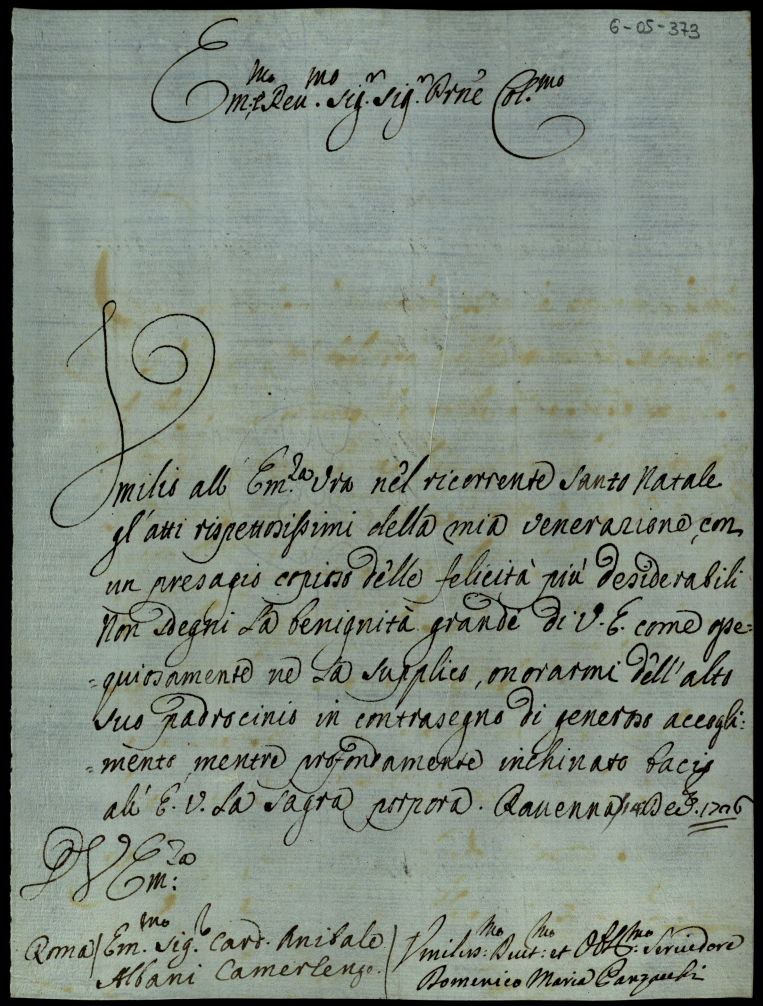 6-05-373
Em.mo e Reu.mo Sig.r Sig.r Prne Col.mo
Umilio all Em.za Vra nel ricorrente Santo Natale
gl'atti rispettosissimi della mia venerazione, con
un presagio copioso delle felicità più desiderabili
Non sdegni la benignità grande di V. E. come osse=
=quiosamente ne la supplico, onorarmi dell'alto
suo padrocinio in contrasegno di generoso accogli:
=mento, mentre profondamente inchinato bacio
all' E. V. la sagra porpora. Ravenna Dec.
D V Em:za
Roma / Em.mo Sig.r Card. Anibale
Albani Camerlengo.
Umiliss.mo Deuit.mo et Obblig.mo Seruidore
Domenico Maria